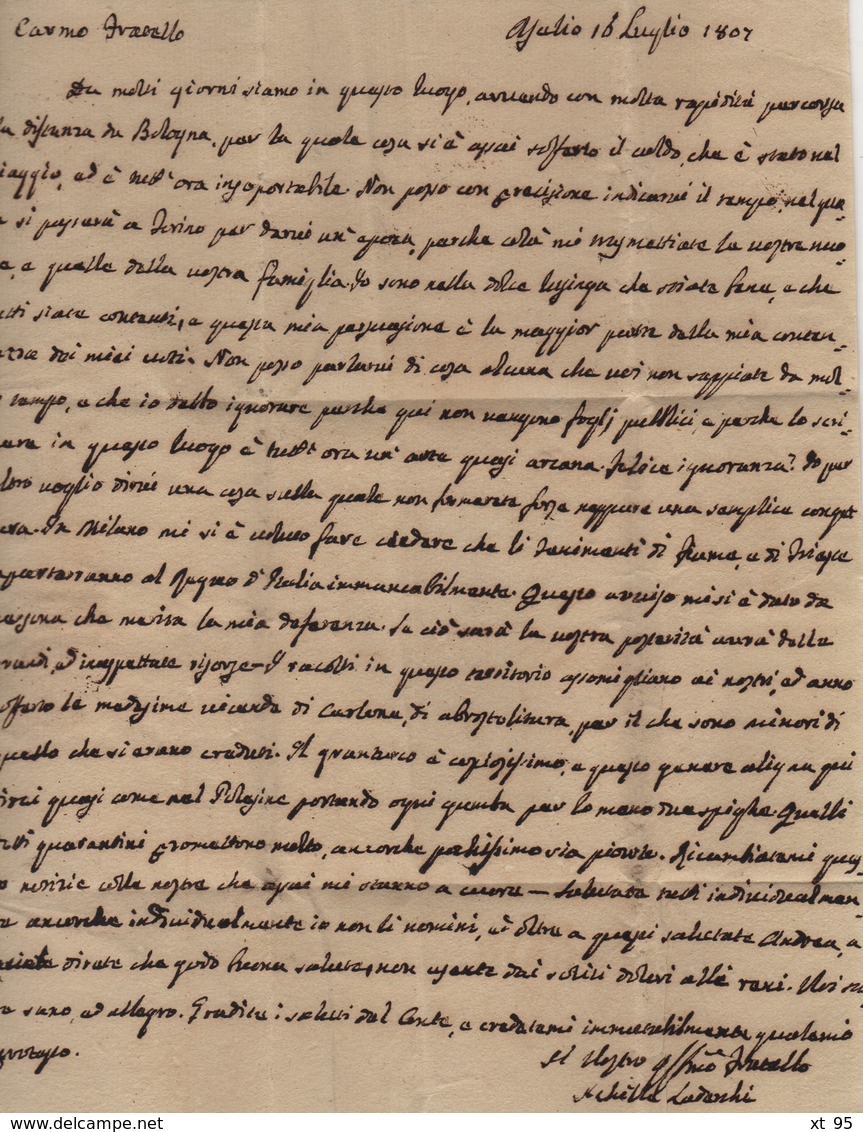 Carmo Fratello
Asolio 16 Luglio 1807
Da molti giorni siamo in questo luogo, avendo con molta rapidità percorsa
la distanza da Bologna, per la quale cosa si è assai sofferto il caldo, che è stato nel
iaggio, ed è tutt' ora insoportabile. Non posso con precisione indicarvi il tempo, nel qua=
si passerà a Torino per darvi un' epoca, perche colà mi trasmettiate le vostre nuo=
e, e quelle della vostra famiglia. Io sono nella dolce lusinga che stiate bene, e che
utti siate contenti, e questa mia persuasione è la maggior parte della mia conten=
dei miei voti. Non posso parlarvi di cosa alcuna che voi non sappiate da mol=
tempo, e che io debbo ignorare perche qui non vengono foglj pubblici, e perche lo scri=
vere in questo luogo è tutt' ora un' arte quasi arcana. Felice ignoranza! Io per
altro voglio dirvi una cosa sulla quale non formarete forse neppure una semplice conget
ura. In Milano mi si è voluto fare credere che li Benimenti di Fiume, e di Trieste
apparterranno al Regno d' Italia immancabilmente. Questo avviso mi si è dato da
persona che merita la mia deferenza. Se ciò sarà la vostra posterità avrà delle
grandi, ed inaspettate risorse — I racolti in questo territorio assomigliano ai nostri, ed anno
sofferto le medesime vicende di Carbone, di abrostolitura, per il che sono minori di
quello che si erano creduti. Il granturco è copiosissimo, e questo genere aligna qui
quasi come nel Polesine portando ogni gamba per lo meno due spighe. Quelli
etti quarantini promettono molto, ancorche pochissimo sia piovuto. Ricambiatemi ques=
notizie colle vostre che assai mi stanno a cuore — Salutate tutti individualmen=
te ancorche individualmente io non li nomini, ed oltre a questi salutate Andrea, a
dirate che godo buona salute, non esente dai soliti dolori alle reni. Voi sta
te sano, ed allegro. Gradite i saluti del Conte, e credetemi immutabilmente qualemi
protesto.
Il Vostro Affmo Fratello
Achille Laderchi
xt 95